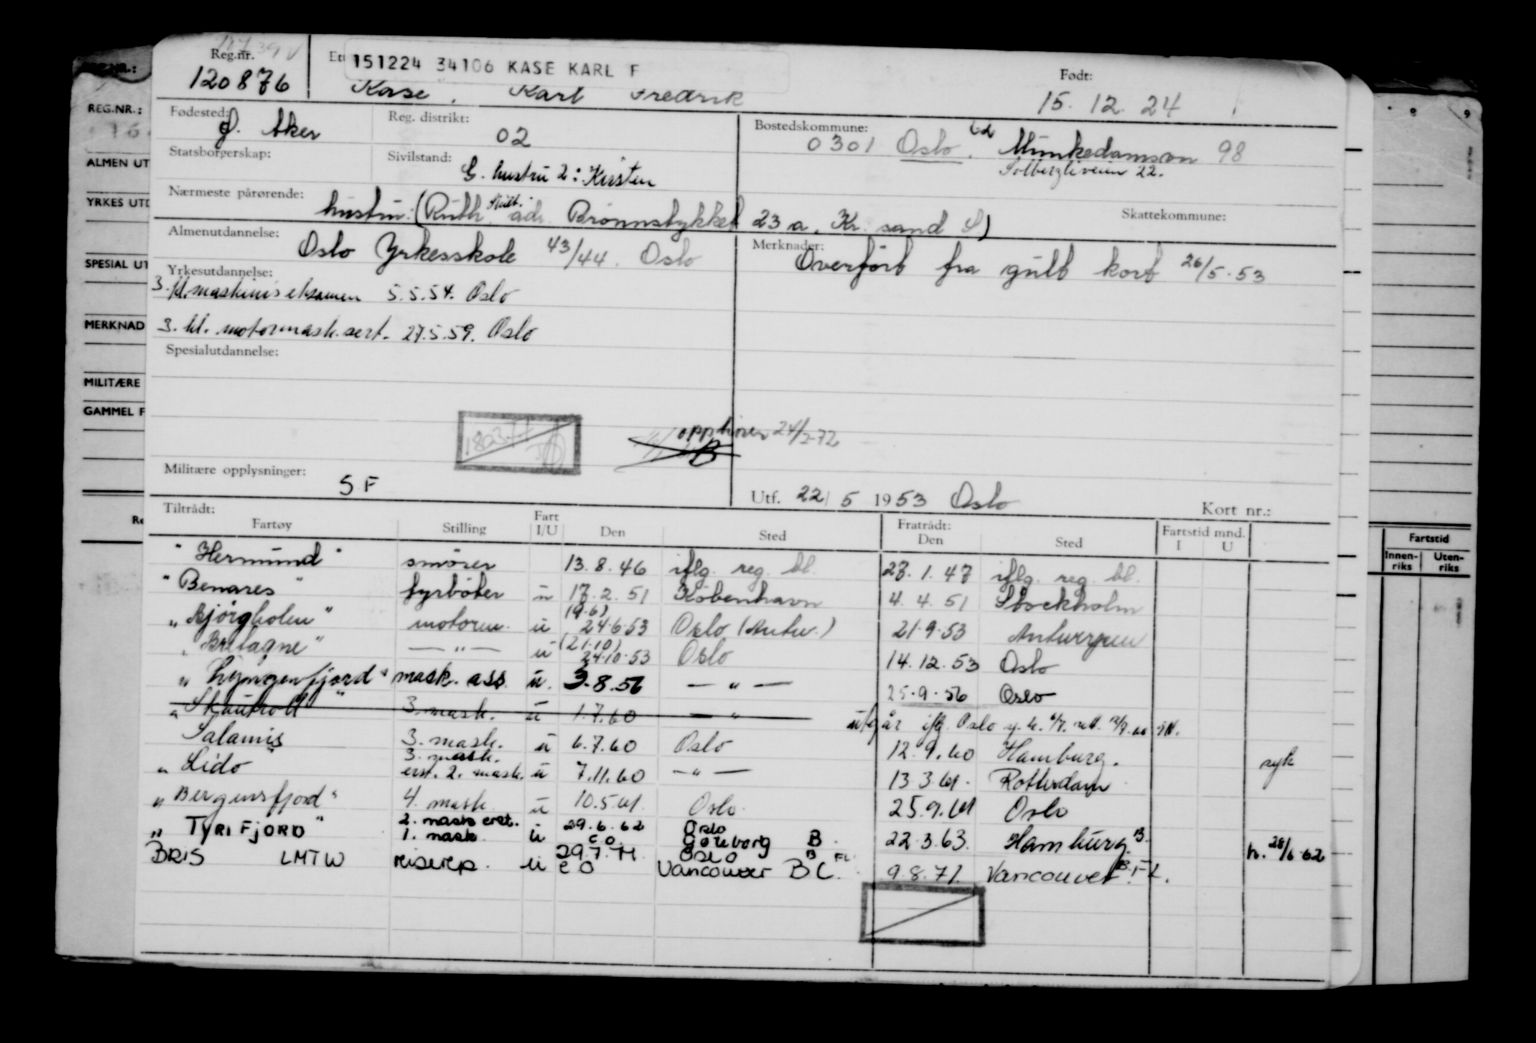 Reg.nr.
120876
151224 34106 KASE KARL F
Kase, Karl Fredrik
Født:
15. 12. 24
Fødested: Ø. Aker
Reg. distrikt: 02
Bostedskommune: 0301 Oslo. Munkedamsvn 98
Solbergliveien 22.
Statsborgerskap:
Sivilstand: G. hustru 2: Kirsten
Nærmeste pårørende: hustru: (Ruth adr. Brønnstykket 23 a. Kr. sand S)
Skattekommune:
Almenutdannelse: Oslo Yrkesskole 43/44. Oslo
Merknader: Overført fra gult kort 26/5-53
Yrkesutdannelse:
3. kl. maskinisteksamen 5.5.54. Oslo
3. kl. motormask.sert. 27.5.59. Oslo
Spesialutdannelse:
opphører 24/2-72
Militære opplysninger: SF
Utf. 22/5 1953 Oslo
Kort nr.:
Tiltrådt:
Fartøy Stilling Fart I/U Den Sted
Fratrådt:
Den Sted
Fartstid mnd.
I U
"Hermund" smører 13.8.46 iflg. reg. bl. 28.1.47 iflg. reg. bl.
"Benares" fyrbøter u 17.2.51 København 4.4.51 Stockholm
(19.6)
"Bjørgholm" motorm. u 24.6.53 Oslo (Antw.) 21.9.53 Antwerpen
(21.10)
"Bretagne" — " — u 24.10.53 Oslo 14.12.53 Oslo
"Lyngenfjord" mask. ass. u. 3.8.56 — " — 25.9.56 Oslo
"Skautroll" 3. mask. u 1.7.60 — " — utgår iflg. Oslo
Salamis 3. mask. u 6.7.60 Oslo 12.9.60 Hamburg. syk
3. mask.
"Lido" erst. 2. mask. u 7.11.60 — " — 13.3.61. Rotterdam
"Bergensfjord" 4. mask. u 10.5.61. Oslo. 25.9.61 Oslo
2. mask erst. 29.6.62 Oslo
"TYRIFJORD" 1. mask u CO Gøteborg B. 22.3.63. Hamburg. B. h. 28/6-62
BRIS LMTW reiserep. u 29.7.71. OSLO B FL
CO Vancouver BC. 9.8.71. Vancouver B.FL.
REG.NR.:
ALMEN UT
YRKES UTD
SPESIAL UT
MERKNAD
MILITÆRE
GAMMEL F
Fartstid
Innen-riks
Uten-riks